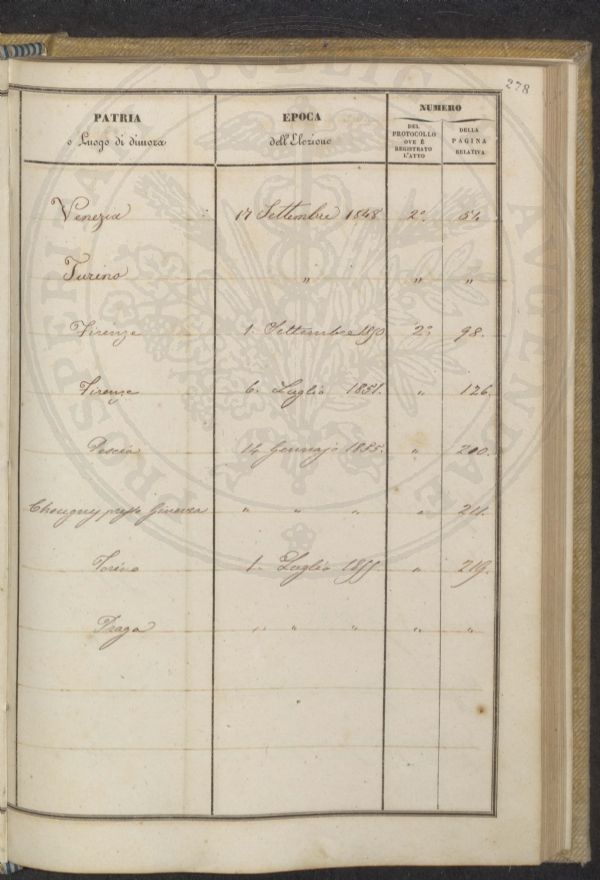 278
PATRIA
o Luogo di dimora
EPOCA
dell'Elezione
NUMERO
DEL
PROTOCOLLO
OVE È
REGISTRATO
L'ATTO
DELLA
PAGINA
RELATIVA
Venezia 17 Settembre 1848 2º. 54.
Turino " " "
Firenze 1. Settembre 1850 2º. 98.
Firenze 6. Luglio 1851. " 126.
Pescia 14 Gennajo 1855. " 200.
presso Ginevra " " " " 211.
Torino 1. Luglio 1855. " 219.
Praga " " " " "
PROSPERITATI PUBLICAE AVGENDAE